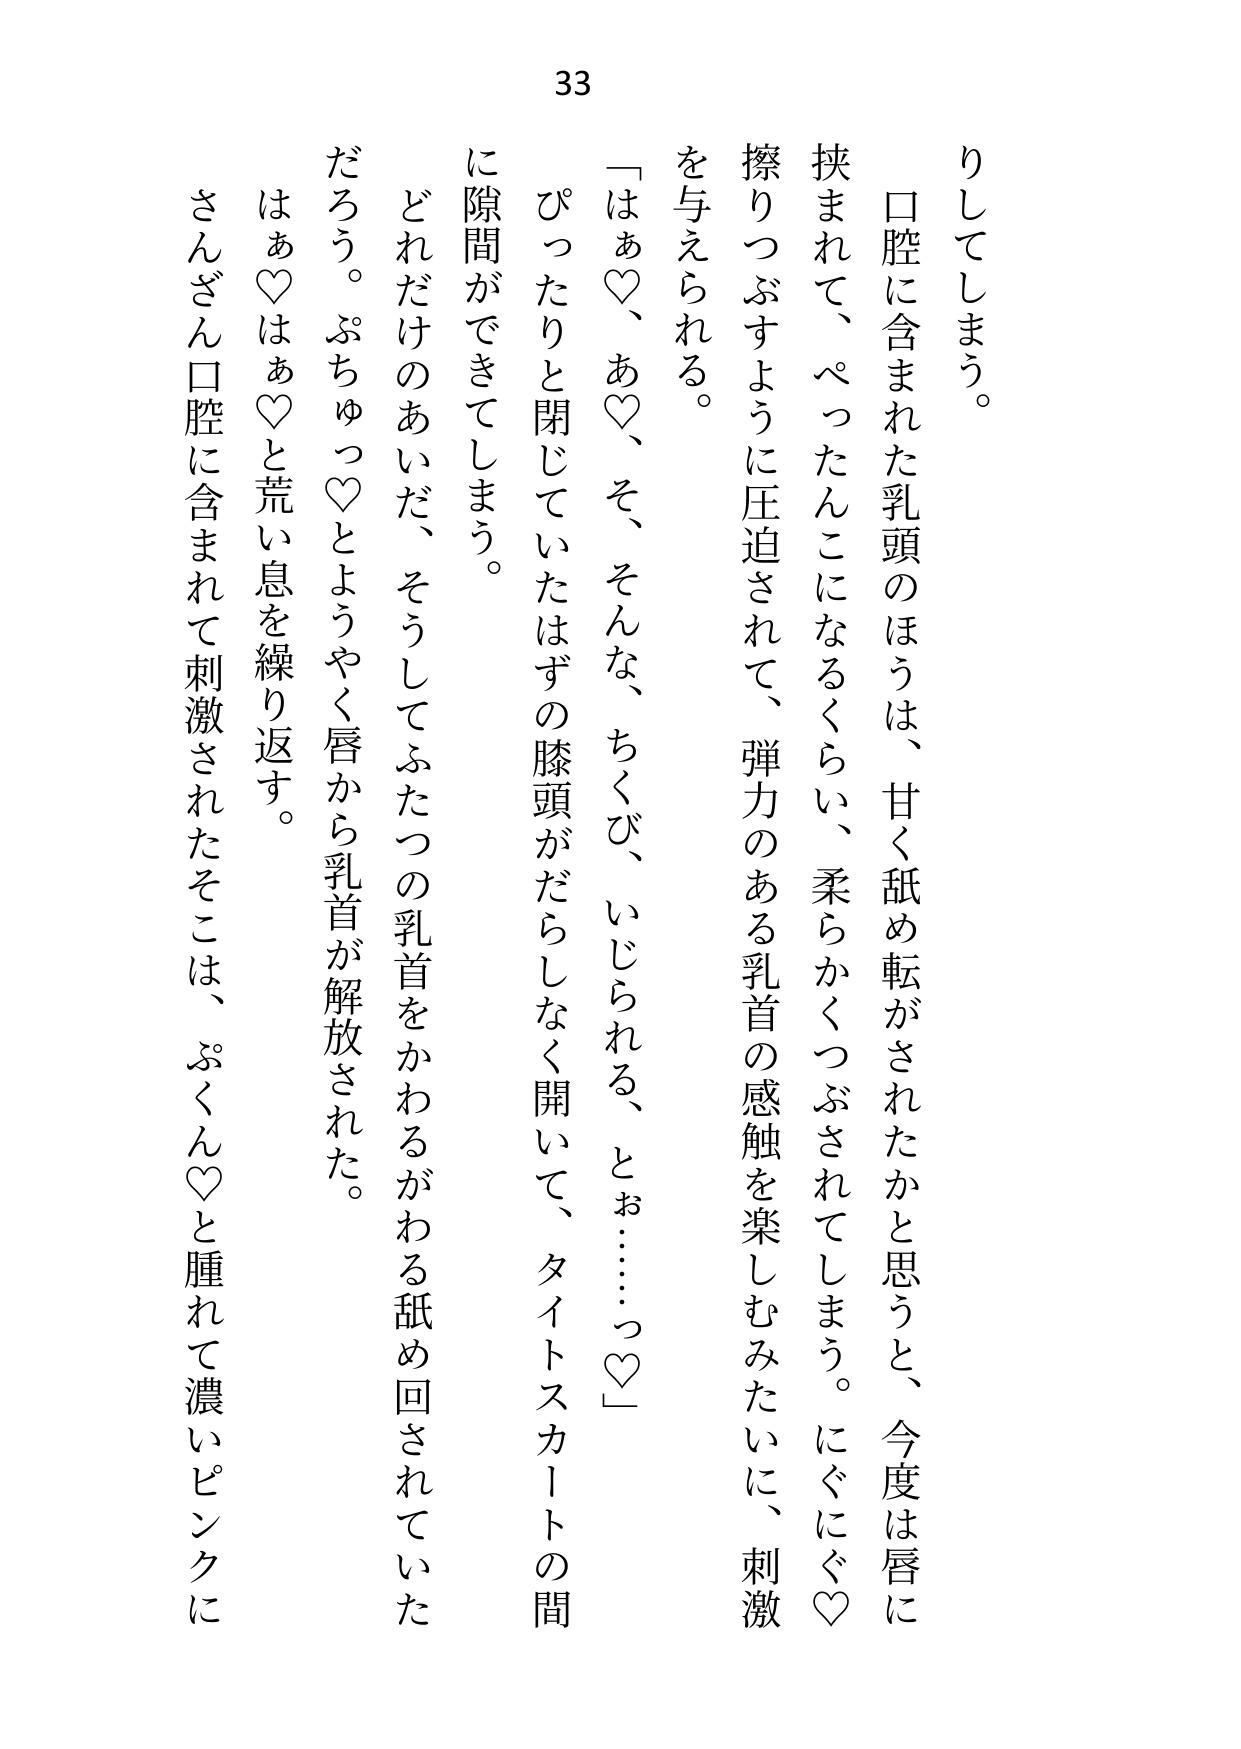 33
りしてしまう。
口腔に含まれた乳頭のほうは、甘く舐め転がされたかと思うと、今度は唇に
挟まれて、ぺったんこになるくらい、柔らかくつぶされてしまう。にぐにぐ♡
擦りつぶすように圧迫されて、弾力のある乳首の感触を楽しむみたいに、刺激
を与えられる。
「はぁ♡、あ♡、そ、そんな、ちくび、いじられる、とぉ……っ♡」
ぴったりと閉じていたはずの膝頭がだらしなく開いて、タイトスカートの間
に隙間ができてしまう。
どれだけのあいだ、そうしてふたつの乳首をかわるがわる舐め回されていた
だろう。ぷちゅっ♡とようやく唇から乳首が解放された。
はぁ♡はぁ♡と荒い息を繰り返す。
さんざん口腔に含まれて刺激されたそこは、ぷくん♡と腫れて濃いピンクに